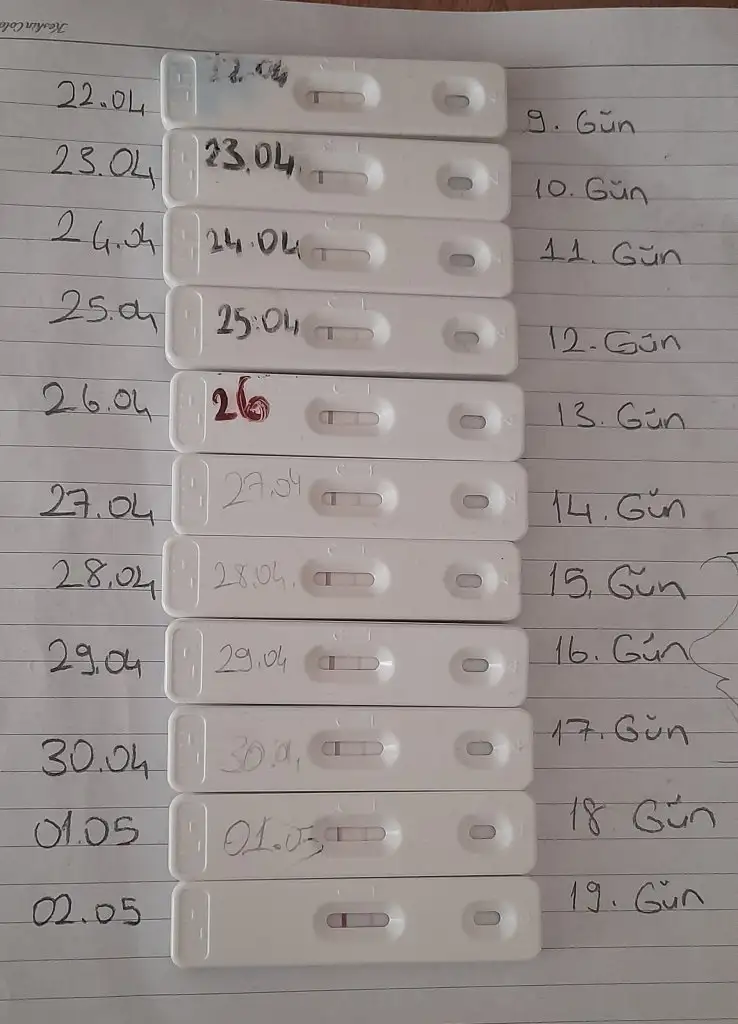 KeskinColor
22.04 22.04 9. Gün
23.04 23.04 10. Gün
24.04 24.04 11. Gün
25.04 25.04 12. Gün
26.04 26 13. Gün
27.04 27.04 14. Gün
28.04 28.04. 15. Gün
29.04 29.04 16. Gün
30.04 17. Gün
01.05 01.05 18 Gün
02.05 19. Gün